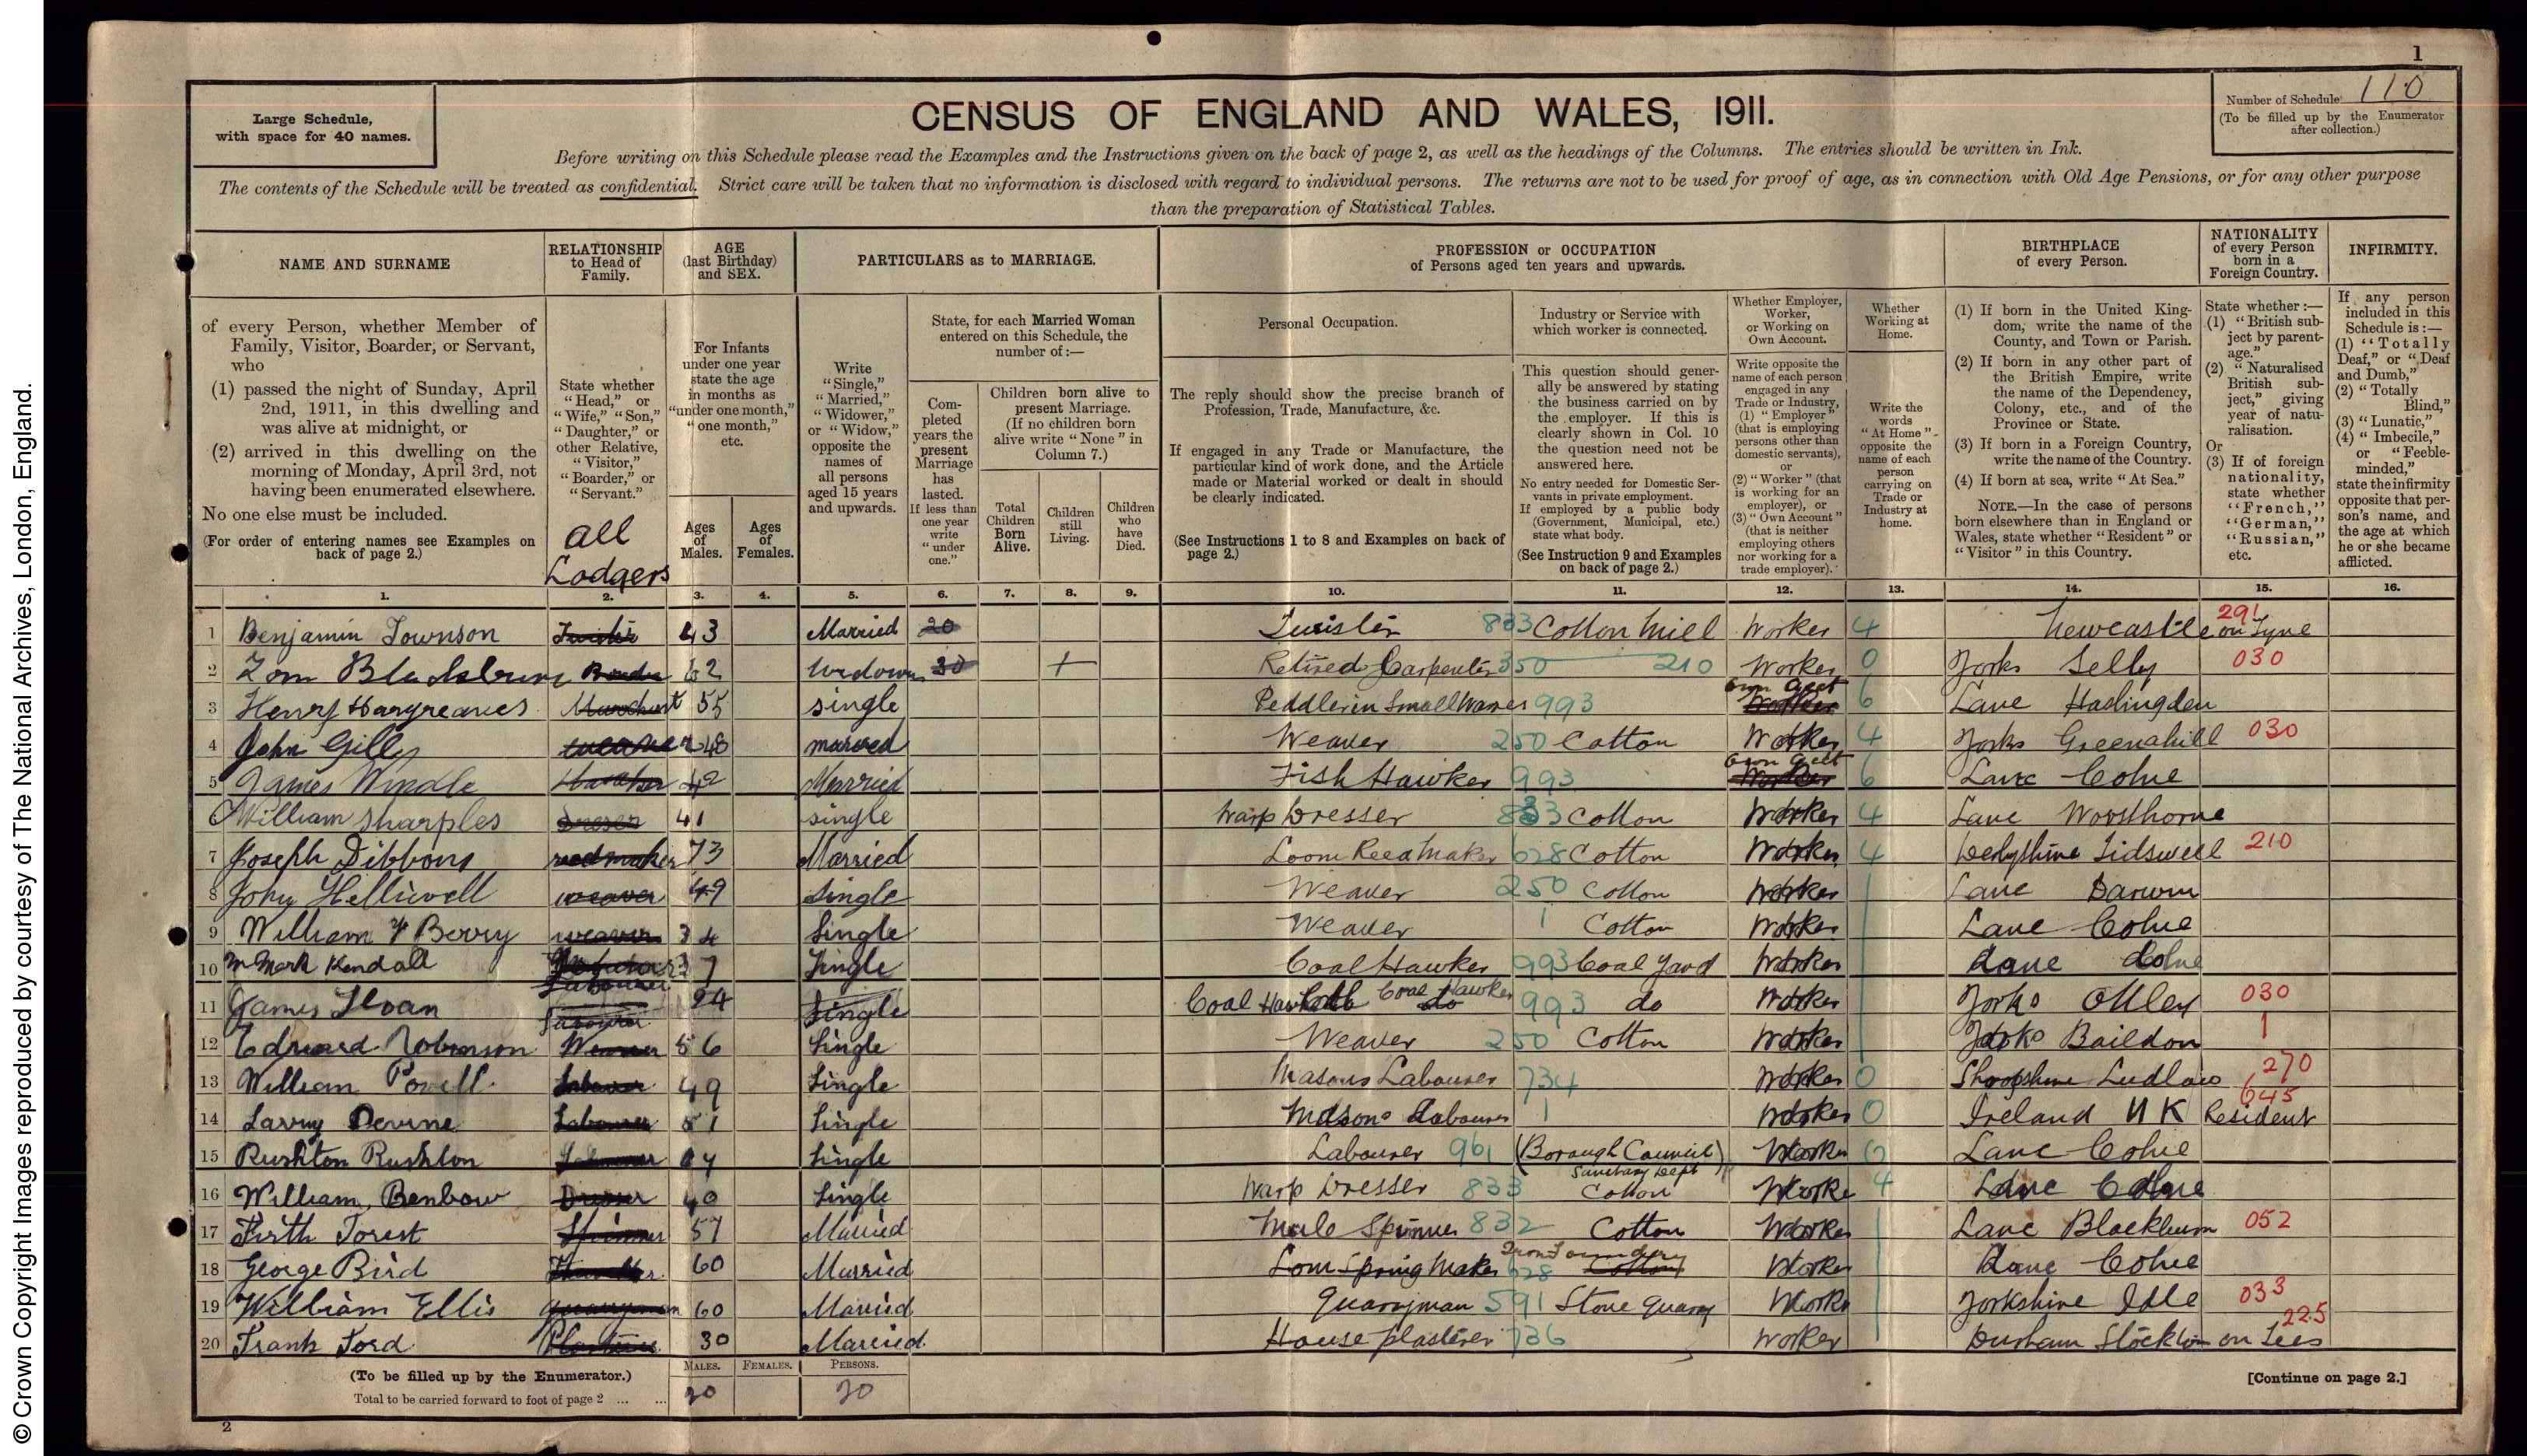 1
Large Schedule,
with space for 40 names.
CENSUS OF ENGLAND AND WALES, 1911.
Number of Schedule 110
(To be filled up by the Enumerator
after collection.)
Before writing on this Schedule please read the Examples and the Instructions given on the back of page 2, as well as the headings of the Columns. The entries should be written in Ink.
The contents of the Schedule will be treated as confidential. Strict care will be taken that no information is disclosed with regard to individual persons. The returns are not to be used for proof of age, as in connection with Old Age Pensions, or for any other purpose
than the preparation of Statistical Tables.
NAME AND SURNAME
of every Person, whether Member of
Family, Visitor, Boarder, or Servant,
who
(1) passed the night of Sunday, April
2nd, 1911, in this dwelling and
was alive at midnight, or
(2) arrived in this dwelling on the
morning of Monday, April 3rd, not
having been enumerated elsewhere.
No one else must be included.
(For order of entering names see Examples on
back of page 2.)
RELATIONSHIP
to Head of
Family.
State whether
"Head," or
"Wife," "Son,"
"Daughter," or
other Relative,
"Visitor,"
"Boarder," or
"Servant."
all
Lodgers
AGE
(last Birthday)
and SEX.
For Infants
under one year
state the age
in months as
"under one month,"
"one month,"
etc.
Ages
of
Males.
Ages
of
Females.
PARTICULARS as to MARRIAGE.
Write
"Single,"
"Married,"
"Widower,"
or "Widow,"
opposite the
names of
all persons
aged 15 years
and upwards.
State, for each Married Woman
entered on this Schedule, the
number of :—
Com-
pleted
years the
present
Marriage
has
lasted.
If less than
one year
write
"under
one."
Children born alive to
present Marriage.
(If no children born
alive write "None" in
Column 7.)
Total
Children
Born
Alive.
Children
still
Living.
Children
who
have
Died.
PROFESSION or OCCUPATION
of Persons aged ten years and upwards.
Personal Occupation.
The reply should show the precise branch of
Profession, Trade, Manufacture, &c.
If engaged in any Trade or Manufacture, the
particular kind of work done, and the Article
made or Material worked or dealt in should
be clearly indicated.
(See Instructions 1 to 8 and Examples on back of
page 2.)
Industry or Service with
which worker is connected.
This question should gener-
ally be answered by stating
the business carried on by
the employer. If this is
clearly shown in Col. 10
the question need not be
answered here.
No entry needed for Domestic Ser-
vants in private employment.
If employed by a public body
(Government, Municipal, etc.)
state what body.
(See Instruction 9 and Examples
on back of page 2.)
Whether Employer,
Worker,
or Working on
Own Account.
Write opposite the
name of each person
engaged in any
Trade or Industry,
(1) "Employer"
(that is employing
persons other than
domestic servants),
or
(2) "Worker" (that
is working for an
employer), or
(3) "Own Account"
(that is neither
employing others
nor working for a
trade employer).
Whether
Working at
Home.
Write the
words
"At Home"
opposite the
name of each
person
carrying on
Trade or
Industry at
home.
BIRTHPLACE
of every Person.
(1) If born in the United King-
dom, write the name of the
County, and Town or Parish.
(2) If born in any other part of
the British Empire, write
the name of the Dependency,
Colony, etc., and of the
Province or State.
(3) If born in a Foreign Country,
write the name of the Country.
(4) If born at sea, write "At Sea."
NOTE.—In the case of persons
born elsewhere than in England or
Wales, state whether "Resident" or
"Visitor" in this Country.
NATIONALITY
of every Person
born in a
Foreign Country.
State whether :—
(1) "British sub-
ject by parent-
age."
(2) "Naturalised
British sub-
ject," giving
year of natu-
ralisation.
Or
(3) If of foreign
nationality,
state whether
"French,"
"German,"
"Russian,"
etc.
INFIRMITY.
If any person
included in this
Schedule is :—
(1) "Totally
Deaf," or "Deaf
and Dumb,"
(2) "Totally
Blind,"
(3) "Lunatic,"
(4) "Imbecile,"
or "Feeble-
minded,"
state the infirmity
opposite that per-
son's name, and
the age at which
he or she became
afflicted.
1. 2. 3. 4. 5. 6. 7. 8. 9. 10. 11. 12. 13. 14. 15. 16.
1 Benjamin Townson 43 Married 20 Twister 833 Cotton Mill Worker 4 Newcastle on Tyne 291
2 Tom Blackburn Boarder 62 Widower 30 Retired Carpenter 350 210 Worker 0 Yorks Selby 030
3 Henry Hargreaves 55 single Peddler in Small Wares 993 Own Acct Worker 6 Lanc Haslingden
4 John Gill 48 married Weaver 250 Cotton Worker 4 Yorks 030
5 James Windle Hawker 42 Married Fish Hawker 993 Own Acct Worker 6 Lanc Colne
6 William Sharples Dresser 41 single Warp Dresser 833 Cotton Worker 4 Lanc
7 Joseph Dibbons reedmaker 73 Married Loom Reed Maker 628 Cotton Worker 4 Derbyshire Tidswell 210
8 John Helliwell weaver 49 Single Weaver 250 Cotton Worker Lanc Darwin
9 William Berry weaver 34 Single Weaver Cotton Worker Lanc Colne
10 Mark Kendall 37 Single Coal Hawker 993 Coal Yard Worker Lanc Colne
11 James Sloan Labourer 24 Single Coal Hawker do 993 do Worker Yorks Otley 030
12 Edward Robinson Weaver 56 Single Weaver 250 Cotton Worker Yorks Baildon
13 William Powell Labourer 49 Single Masons Labourer 734 Worker 0 Shropshire Ludlow 270
14 Larry Devine Labourer 51 Single Masons Labourer Worker 0 Ireland UK Resident 645
15 Rushton Rushton Labourer Single Labourer 961 (Borough Council) Sanitary Dept Worker Lanc Colne
16 William Benbow Dresser 40 Single Warp Dresser 833 Cotton Worker 4 Lanc Colne
17 Firth Forest Spinner 57 Married Mule Spinner 832 Cotton Worker Lanc Blackburn 052
18 George Bird 60 Married Loom Spring Maker 628 Iron Foundry Cotton Worker Lanc Colne
19 William Ellis quarryman 60 Married Quarryman 591 Stone Quarry Worker Yorkshire Idle 033
20 Frank Ford Plasterer 30 Married House plasterer 736 Worker Durham Stockton on Tees 225
(To be filled up by the Enumerator.)
Total to be carried forward to foot of page 2 ... ...
MALES. FEMALES. PERSONS.
20 20
[Continue on page 2.]
2
© Crown Copyright Images reproduced by courtesy of The National Archives, London, England.